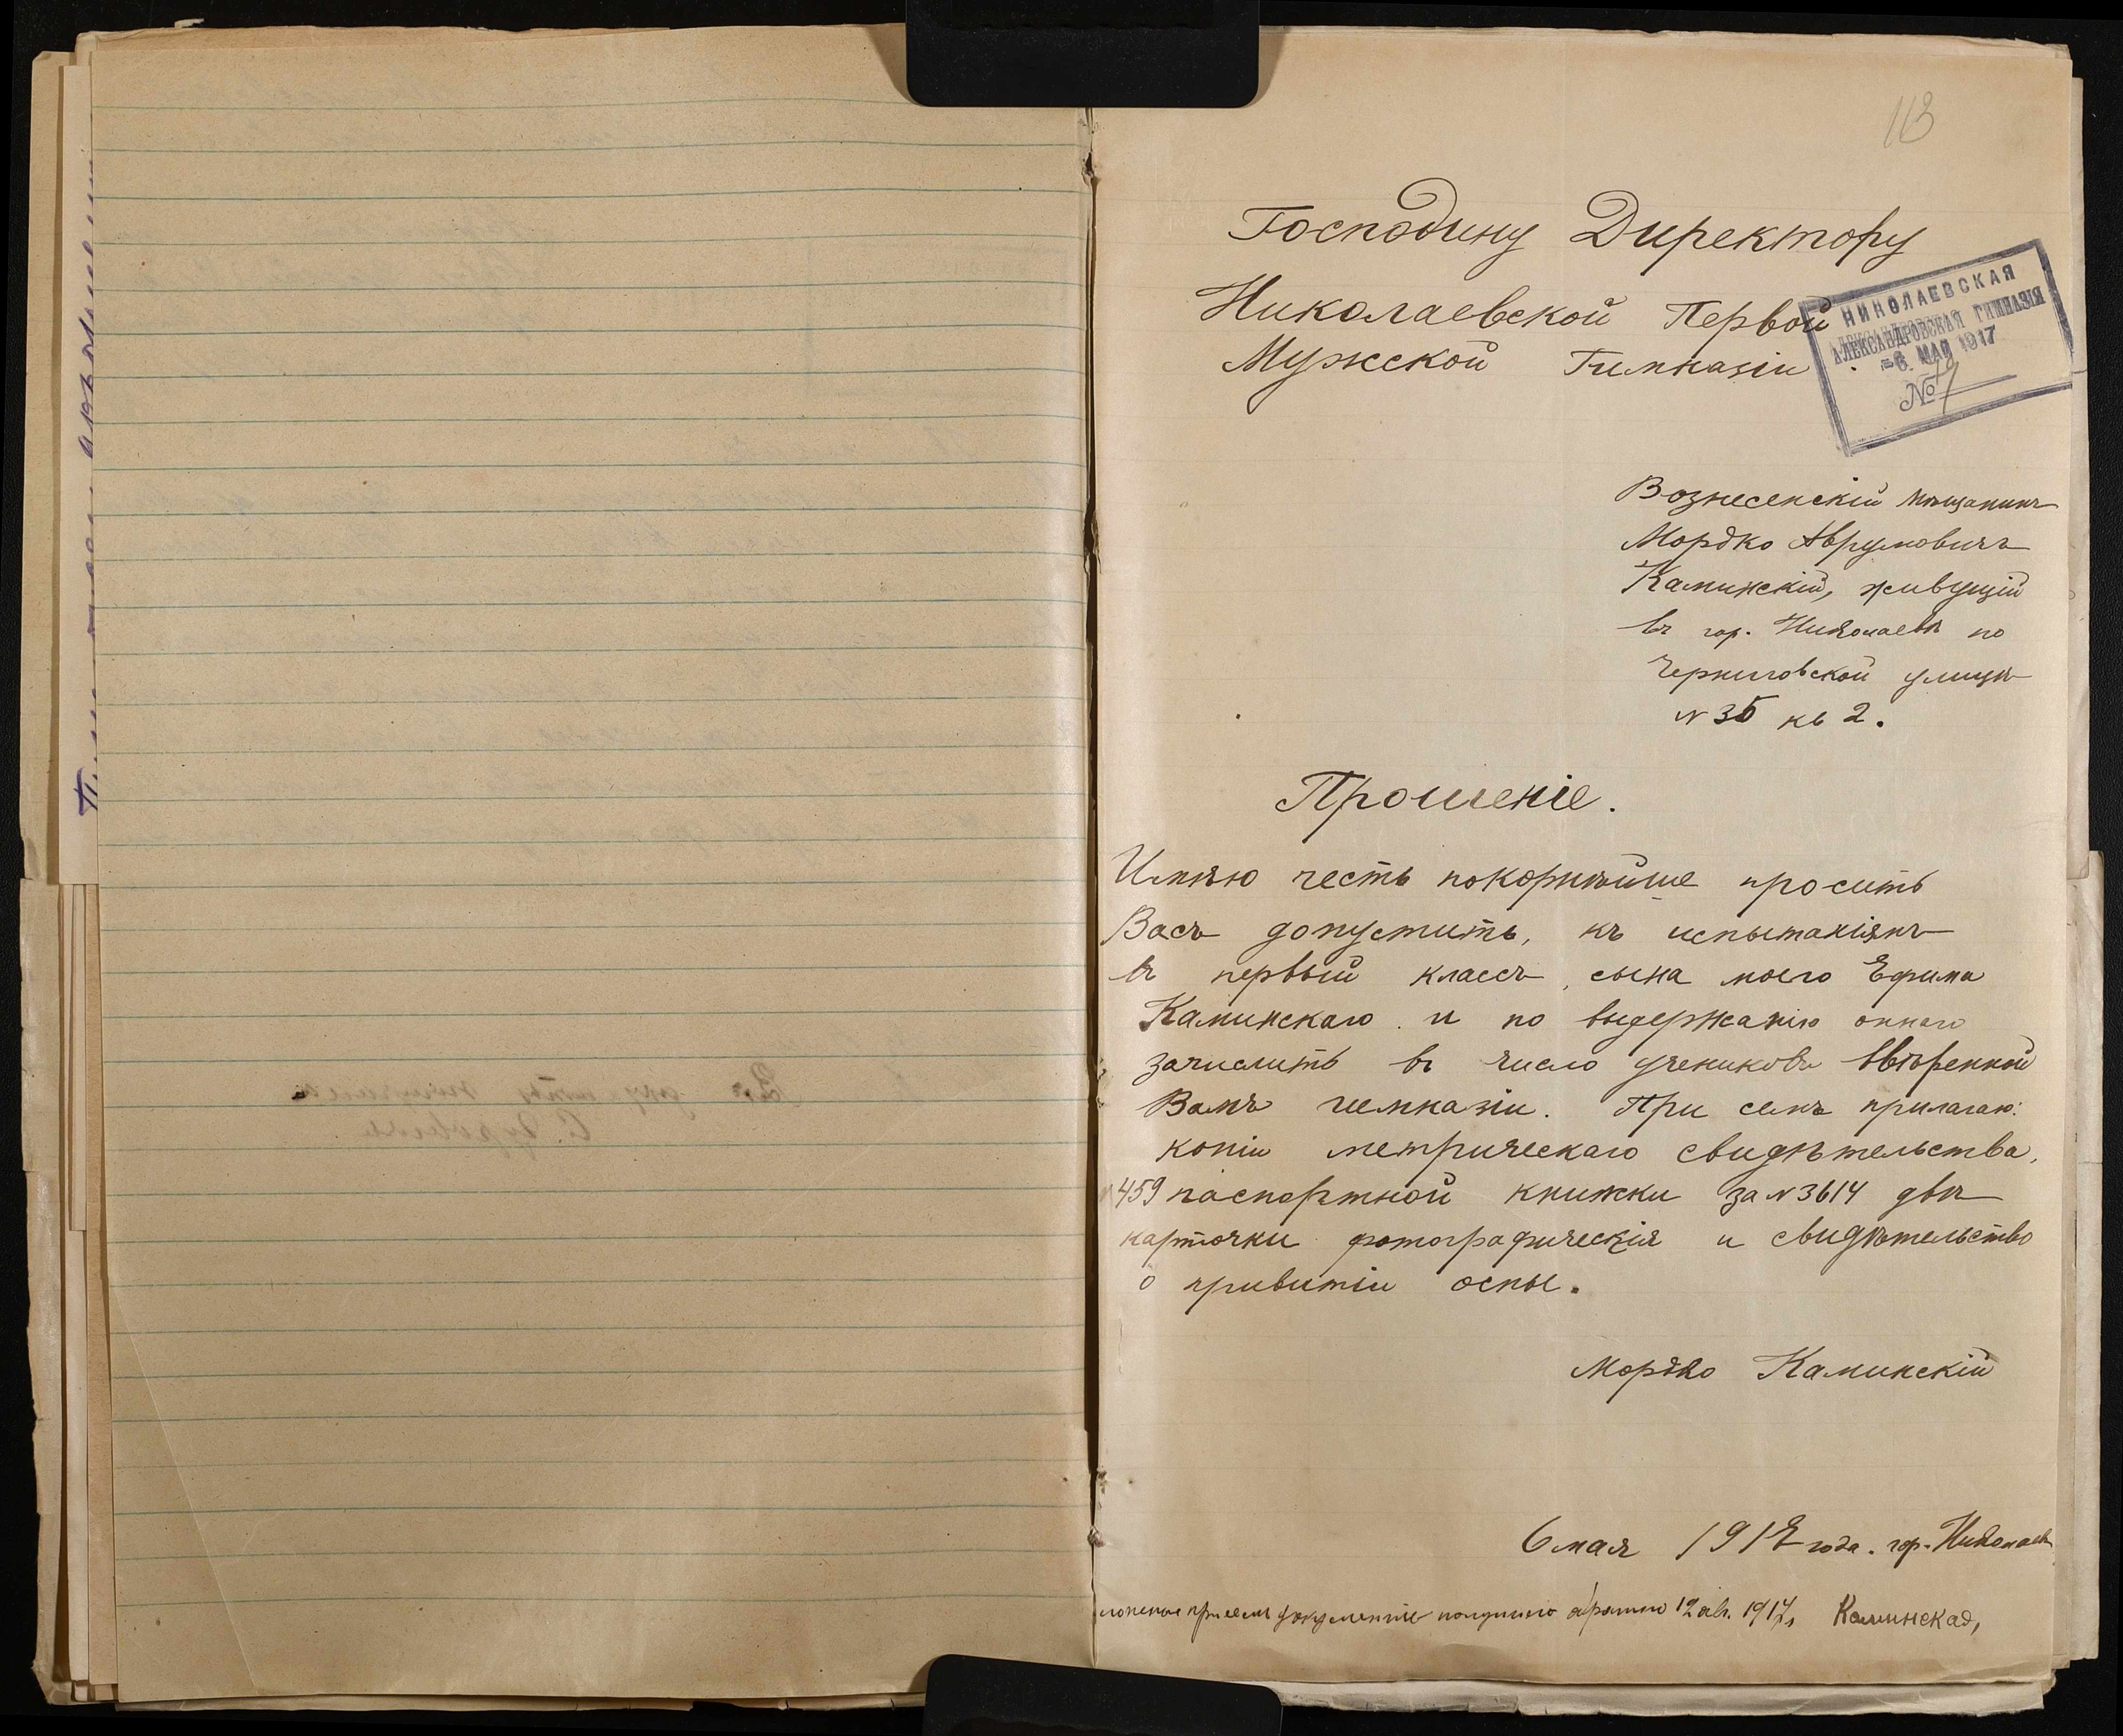 113
Господину Директору
Николаевской Первой
Мужской Гимназіи
НИКОЛАЕВСКАЯ
АЛЕКСАНДРОВСКАЯ ГИМНАЗІЯ
=6. МАЯ 1917
№
Вознесенскій мѣщанинъ
Мордко Аврумовичъ
Каминскій, живущій
въ гор. Николаевѣ по
Черниговской улицѣ
№ 35 кв 2.
Прошеніе.
Имѣю честь покорнѣйше просить
Васъ допустить, къ испытаніямъ
въ первый классъ, сына моего Ефима
Каминскаго и по выдержанію оннаго
зачислить въ число учениковъ ввѣренной
Вамъ гимназіи. При семъ прилагаю:
копіи метрическаго свидѣтельства,
459 паспортной книжки за № 3614 двѣ
карточки фотографическія и свидѣтельство
о привитіи оспы.
Мордко Каминскій
6 мая 1917 года. гор. Николаевъ
при семъ документы получила обратно 12 авг. 1917 г. Каминская,